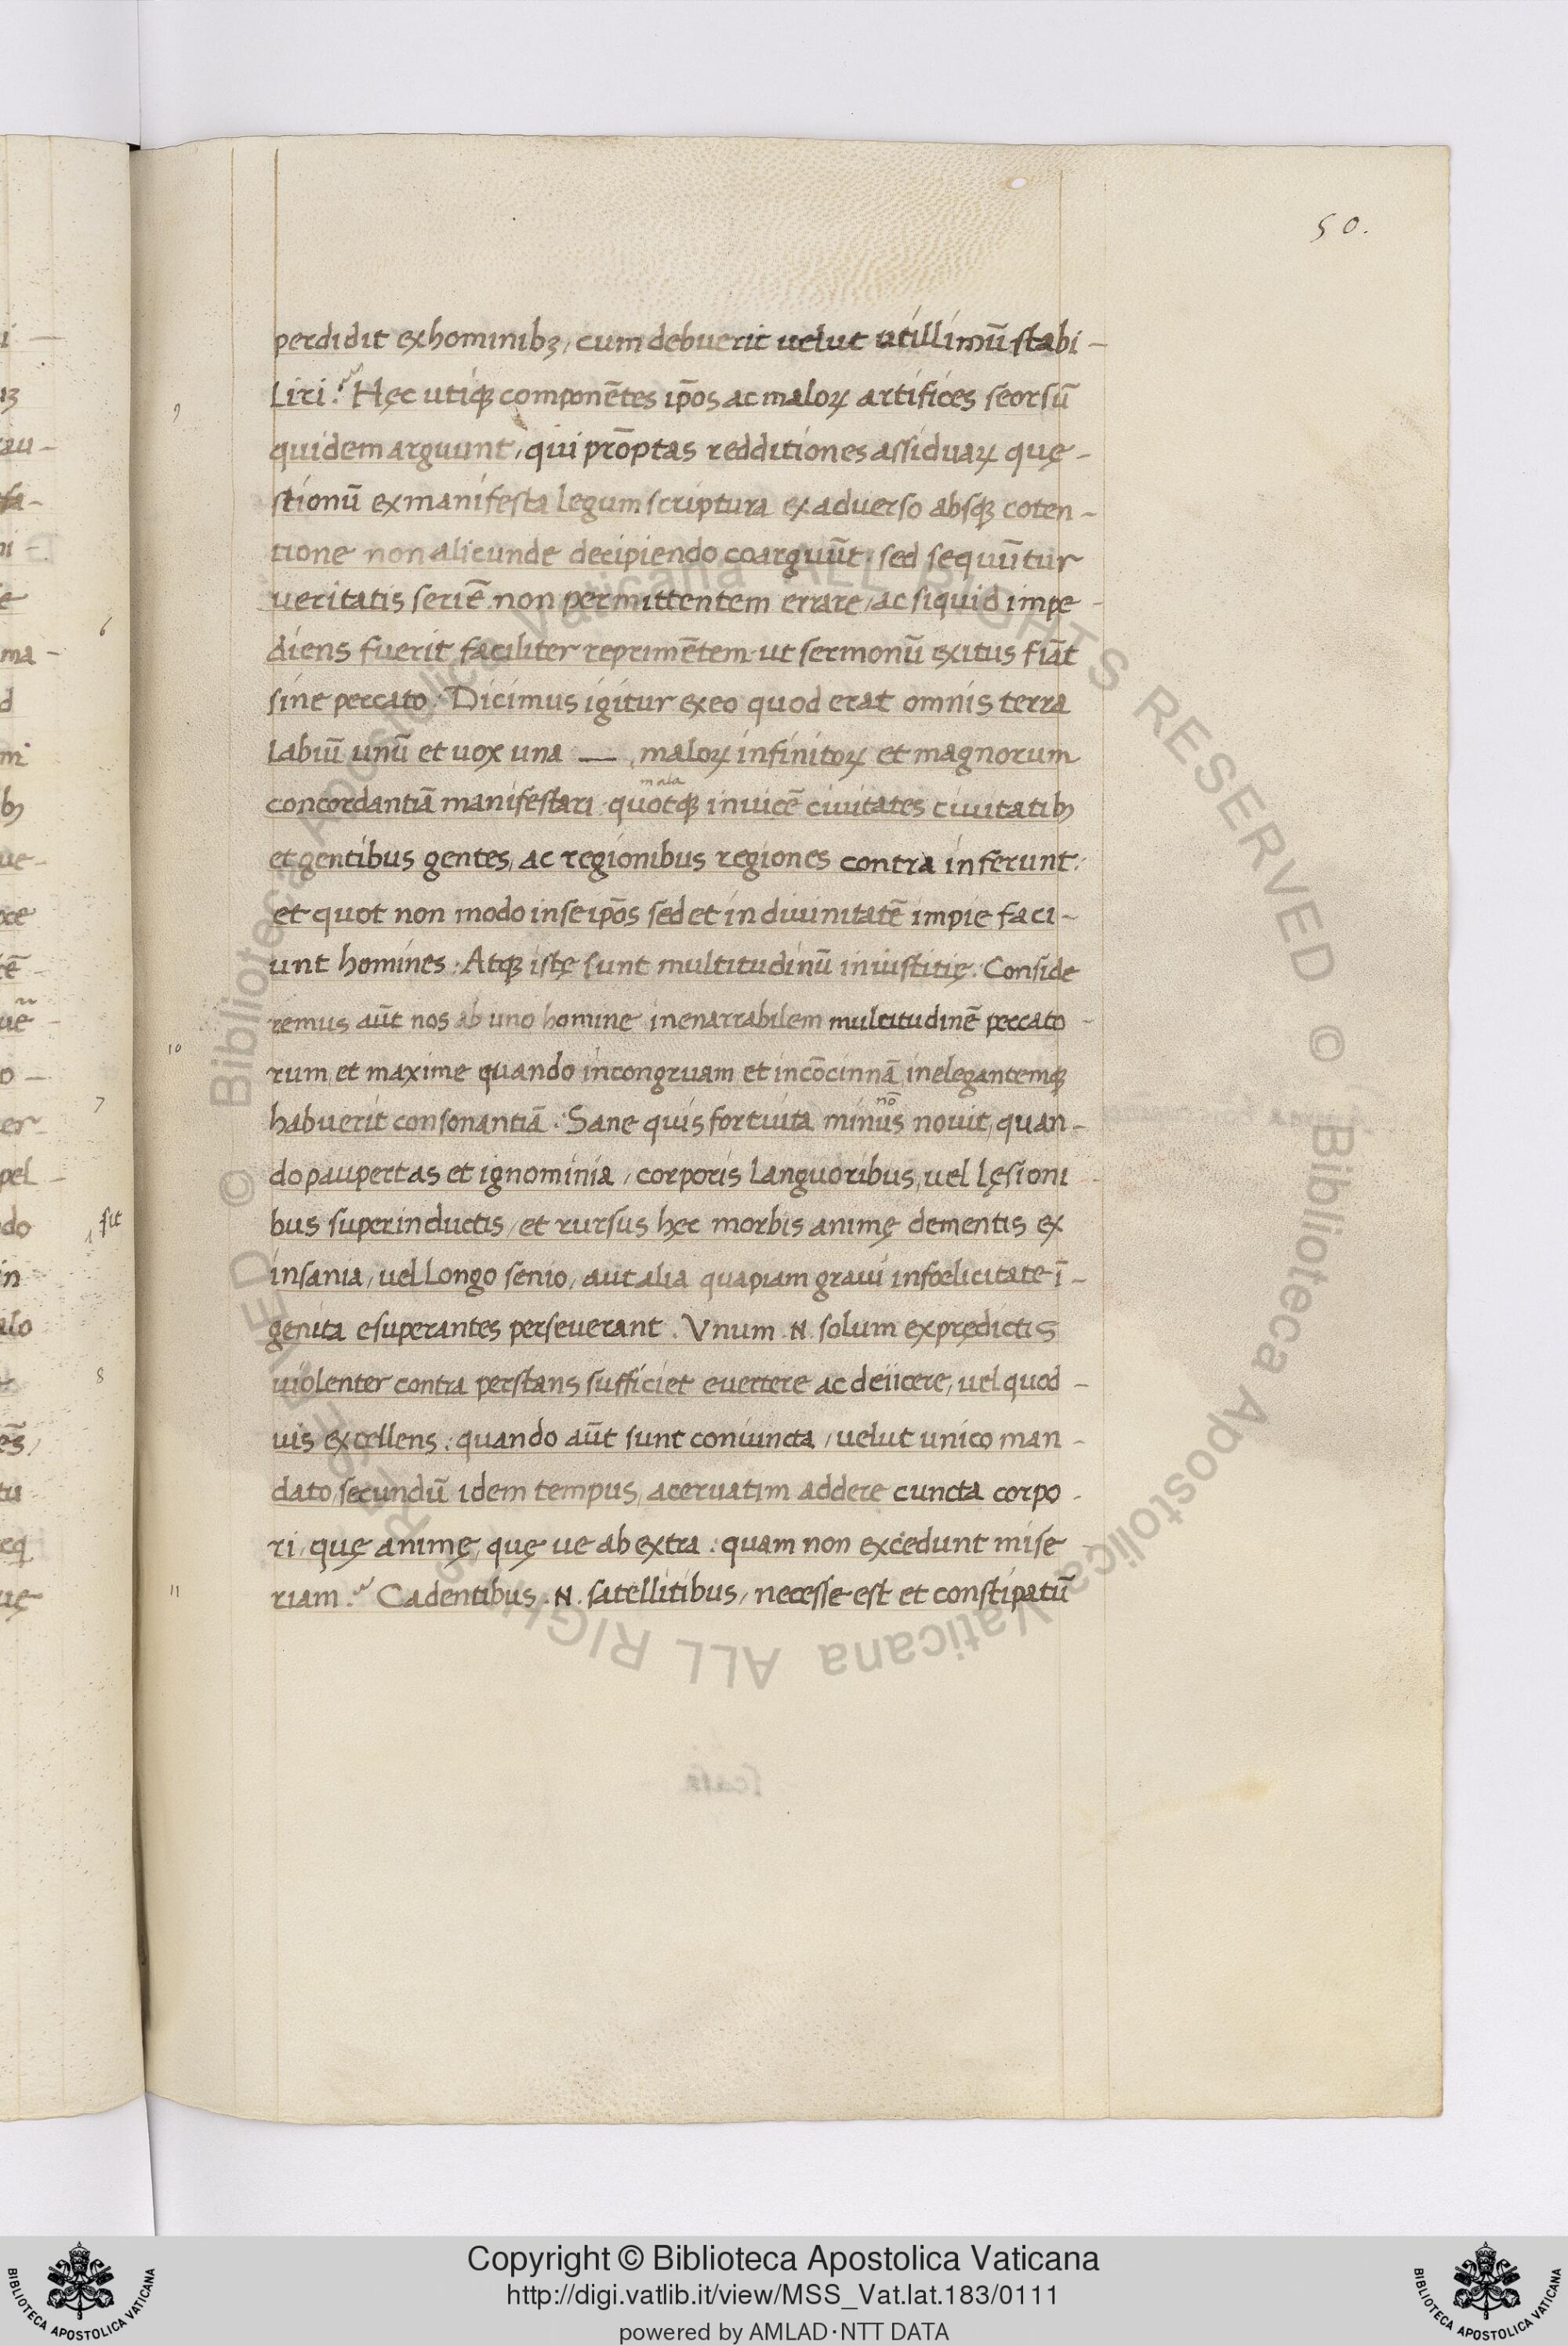 50.
perdidit ex hominibꝫ, cum debuerit velut utillimū stabi-
liri? Hęc utiqꝫ componētes ip̄os ac maloꝝ artifices seorsū
quidem arguunt, qui prōptas redditiones assiduaꝝ quę-
stionū ex manifesta legum scriptura ex adverso absqꝫ coten-
tione non alicunde decipiendo coarguūt. sed sequūtur
veritatis seriē non permittentem errare, ac siquid impe-
diens fuerit faciliter reprimētem. ut sermonū exitus fiāt
sine peccato. Dicimus igitur ex eo quod erat omnis terra
labiū unū et vox una — maloꝝ infinitoꝝ et magnorum
mala
concordantiā manifestari. quotqꝫ invicē civitates civitatib⁹
et gentibus gentes, ac regionibus regiones contra inferunt:
et quot non modo in se ip̄os sed et in divinitatē impie faci-
unt homines. Atqꝫ istę sunt multitudinū iniustitię. Conside
remus aūt nos ab uno homine inenarrabilem multitudinē peccato-
10
rum, et maxime quando incongruam et incōcinnā, inelegantemqꝫ
nō
habuerit consonantiā. Sane quis fortuita minus novit, quan-
do paupertas et ignominia, corporis languoribus, vel lęsioni
bus superinductis, et rursus hęc morbis animę dementis ex
insania, vel longo senio, aut alia quapiam gravi infoelicitate ī-
genita exuperantes perseverant. Vnum .N. solum ex prędictis
violenter contra perstans sufficiet evertere ac deiicere, vel quod-
vis excellens: quando aūt sunt coniuncta, velut unico man-
dato, secundū idem tempus, acervatim addere cuncta corpo-
ri, quę animę, quę ve ab extra: quam non excedunt mise-
11
riam? Cadentibus .N. satellitibus, necesse est et constipatū
9
6
7
sit
8
Copyright © Biblioteca Apostolica Vaticana
http://digi.vatlib.it/view/MSS_Vat.lat.183/0111
powered by AMLAD·NTT DATA
BIBLIOTECA APOSTOLICA VATICANA
BIBLIOTECA APOSTOLICA VATICANA
© Biblioteca Apostolica Vaticana ALL RIGHTS RESERVED © Biblioteca Apostolica Vaticana ALL RIGHTS RESERVED